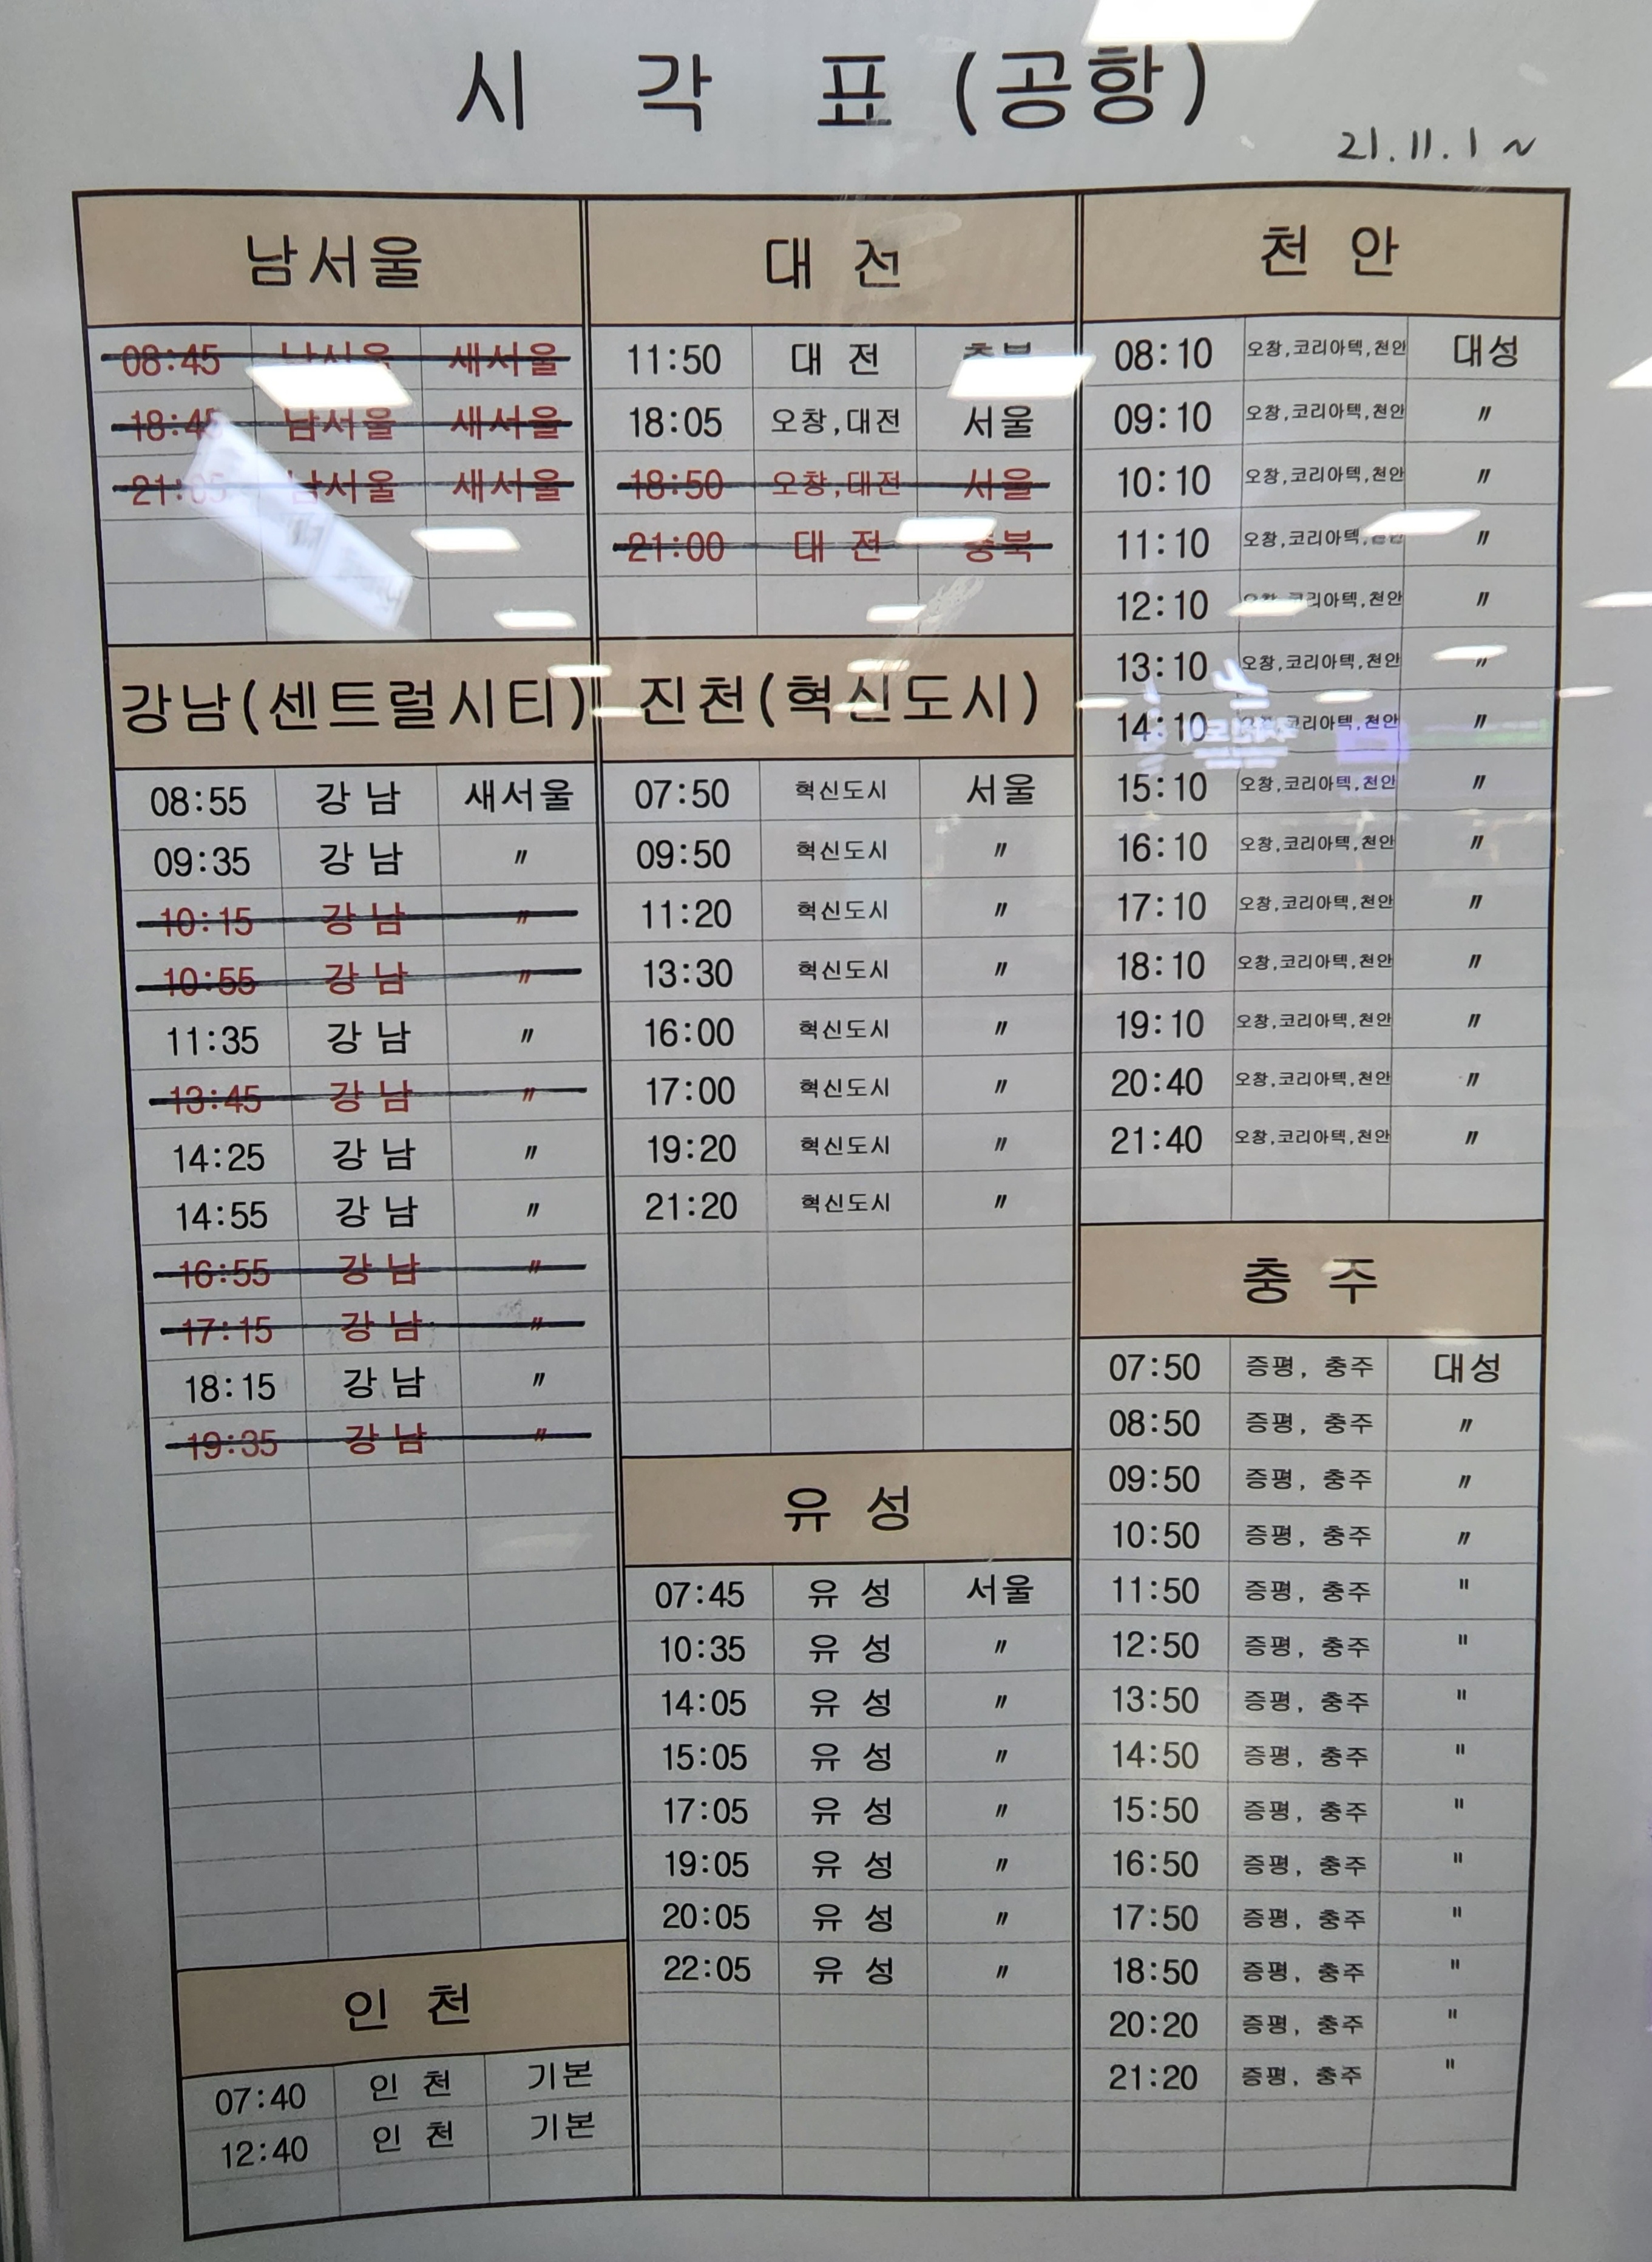 시 각 표 (공항)
21.11.1 ~
남서울
08:45 남서울 새서울
18:45 남서울 새서울
21:05 남서울 새서울
강남(센트럴시티)
08:55 강 남 새서울
09:35 강 남 〃
10:15 강 남 〃
10:55 강 남 〃
11:35 강 남 〃
13:45 강 남 〃
14:25 강 남 〃
14:55 강 남 〃
16:55 강 남 〃
17:15 강 남 〃
18:15 강 남 〃
19:35 강 남 〃
인 천
07:40 인 천 기본
12:40 인 천 기본
대 전
11:50 대 전 충북
18:05 오창,대전 서울
18:50 오창,대전 서울
21:00 대 전 충북
진천(혁신도시)
07:50 혁신도시 서울
09:50 혁신도시 〃
11:20 혁신도시 〃
13:30 혁신도시 〃
16:00 혁신도시 〃
17:00 혁신도시 〃
19:20 혁신도시 〃
21:20 혁신도시 〃
유 성
07:45 유 성 서울
10:35 유 성 〃
14:05 유 성 〃
15:05 유 성 〃
17:05 유 성 〃
19:05 유 성 〃
20:05 유 성 〃
22:05 유 성 〃
천 안
08:10 오창,코리아텍,천안 대성
09:10 오창,코리아텍,천안 〃
10:10 오창,코리아텍,천안 〃
11:10 오창,코리아텍,천안 〃
12:10 오창,코리아텍,천안 〃
13:10 오창,코리아텍,천안 〃
14:10 오창,코리아텍,천안 〃
15:10 오창,코리아텍,천안 〃
16:10 오창,코리아텍,천안 〃
17:10 오창,코리아텍,천안 〃
18:10 오창,코리아텍,천안 〃
19:10 오창,코리아텍,천안 〃
20:40 오창,코리아텍,천안 〃
21:40 오창,코리아텍,천안 〃
충 주
07:50 증평, 충주 대성
08:50 증평, 충주 〃
09:50 증평, 충주 〃
10:50 증평, 충주 〃
11:50 증평, 충주 "
12:50 증평, 충주 "
13:50 증평, 충주 "
14:50 증평, 충주 "
15:50 증평, 충주 "
16:50 증평, 충주 "
17:50 증평, 충주 "
18:50 증평, 충주 "
20:20 증평, 충주 "
21:20 증평, 충주 "